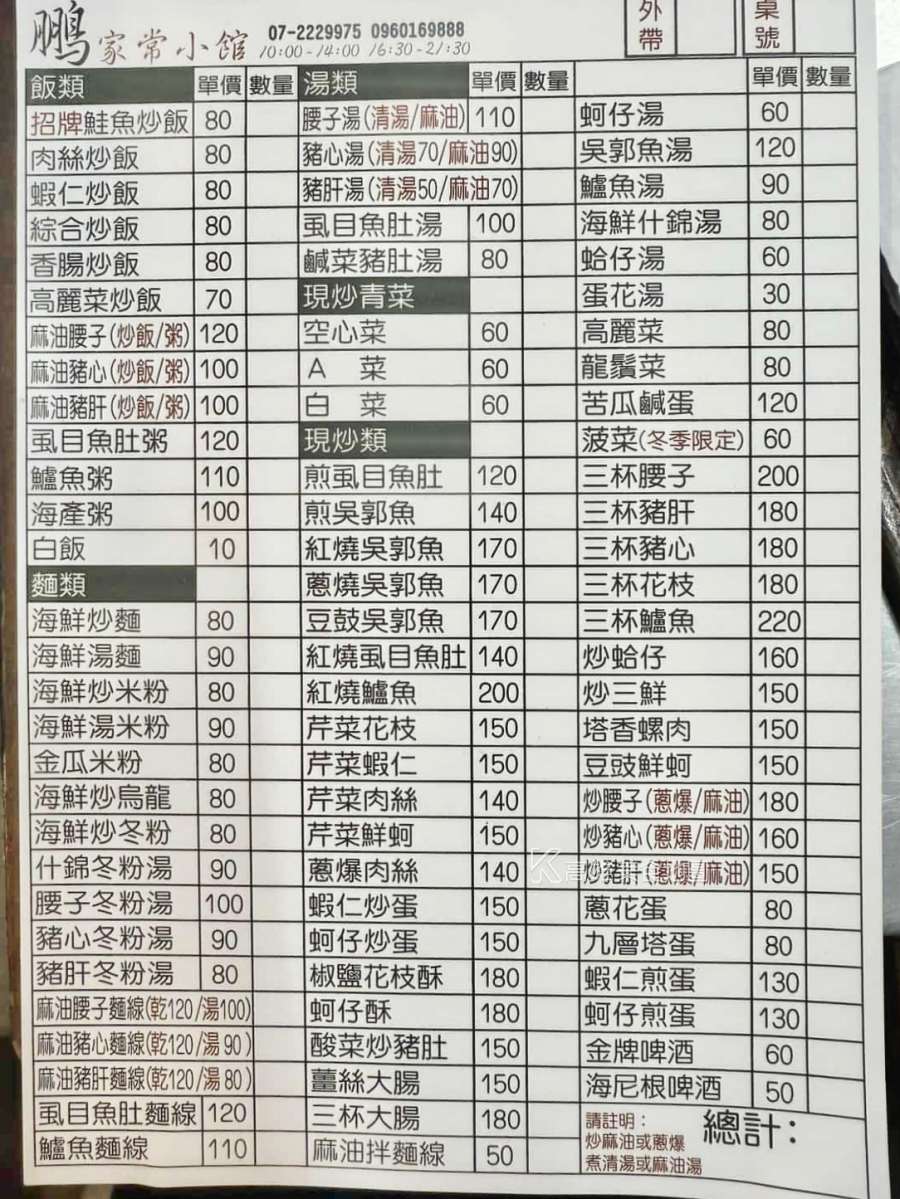 鵬家常小館
07-2229975 0960169888
10:00-14:00 16:30-21:30
外帶
桌號
飯類 單價 數量
招牌鮭魚炒飯 80
肉絲炒飯 80
蝦仁炒飯 80
綜合炒飯 80
香腸炒飯 80
高麗菜炒飯 70
麻油腰子(炒飯/粥) 120
麻油豬心(炒飯/粥) 100
麻油豬肝(炒飯/粥) 100
虱目魚肚粥 120
鱸魚粥 110
海產粥 100
白飯 10
麵類
海鮮炒麵 80
海鮮湯麵 90
海鮮炒米粉 80
海鮮湯米粉 90
金瓜米粉 80
海鮮炒烏龍 80
海鮮炒冬粉 80
什錦冬粉湯 90
腰子冬粉湯 100
豬心冬粉湯 90
豬肝冬粉湯 80
麻油腰子麵線(乾120/湯100)
麻油豬心麵線(乾120/湯90)
麻油豬肝麵線(乾120/湯80)
虱目魚肚麵線 120
鱸魚麵線 110
湯類 單價 數量
腰子湯(清湯/麻油) 110
豬心湯(清湯70/麻油90)
豬肝湯(清湯50/麻油70)
虱目魚肚湯 100
鹹菜豬肚湯 80
現炒青菜
空心菜 60
A 菜 60
白 菜 60
現炒類
煎虱目魚肚 120
煎吳郭魚 140
紅燒吳郭魚 170
蔥燒吳郭魚 170
豆鼓吳郭魚 170
紅燒虱目魚肚 140
紅燒鱸魚 200
芹菜花枝 150
芹菜蝦仁 150
芹菜肉絲 140
芹菜鮮蚵 150
蔥爆肉絲 140
蝦仁炒蛋 150
蚵仔炒蛋 150
椒鹽花枝酥 180
蚵仔酥 180
酸菜炒豬肚 150
薑絲大腸 150
三杯大腸 180
麻油拌麵線 50
單價 數量
蚵仔湯 60
吳郭魚湯 120
鱸魚湯 90
海鮮什錦湯 80
蛤仔湯 60
蛋花湯 30
高麗菜 80
龍鬚菜 80
苦瓜鹹蛋 120
菠菜(冬季限定) 60
三杯腰子 200
三杯豬肝 180
三杯豬心 180
三杯花枝 180
三杯鱸魚 220
炒蛤仔 160
炒三鮮 150
塔香螺肉 150
豆豉鮮蚵 150
炒腰子(蔥爆/麻油) 180
炒豬心(蔥爆/麻油) 160
炒豬肝(蔥爆/麻油) 150
蔥花蛋 80
九層塔蛋 80
蝦仁煎蛋 130
蚵仔煎蛋 130
金牌啤酒 60
海尼根啤酒 50
請註明：
炒麻油或蔥爆
煮清湯或麻油湯
總計：